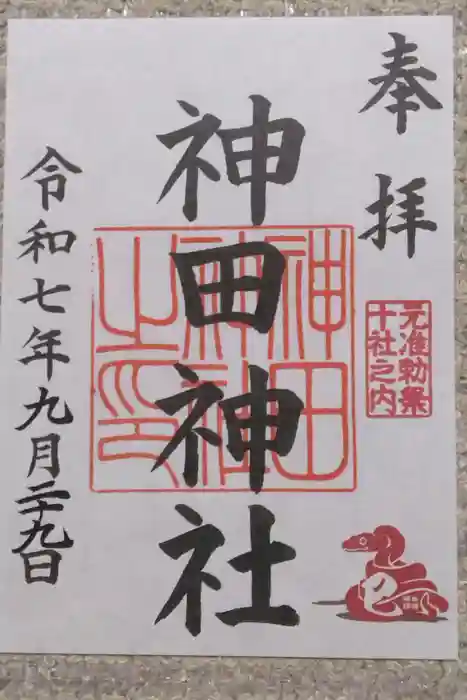 奉拝
元准勅祭
十社之内
神田神社
神田
神社
之印
巳
令和七年九月二十九日